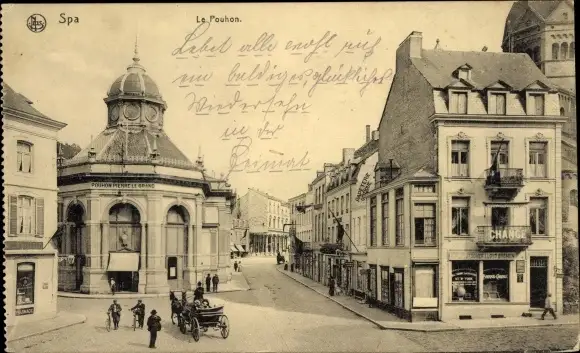 Spa
Le Pouhon.
Lebet alle wohl auf
ein baldiges, glückliches
Wiedersehn
in der
Heimat
POUHON PIERRE LE GRAND
CHANGE